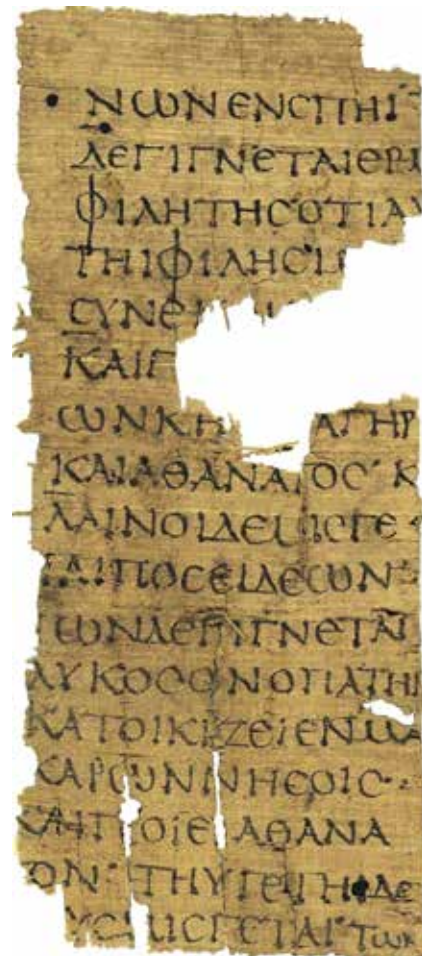 ΝѠΝΕΝϹΠΗΙ
ΔΕΓΙΓΝΕΤΑΙΕΡΜ
ΦΙΛΗΤΗϹΟΤΙΑΥ
ΤΗΙΦΙΛΗϹΙ
ϹΥΝΕ
ΚΑΙΓ
ѠΝΚΗ ΑΓΗΡ
ΚΑΙΑΘΑΝΑΤΟϹ Κ
ΛΑΙΝΟΙΔΕΜΙϹΓΕ
ΤΑΙΠΟϹΕΙΔΕѠΝ
ΤѠΝΔΕΓΙΓΝΕΤΑΙ
ΛΥΚΟϹΟΝΟΠΑΤΗΡ
ΚΑΤΟΙΚΙΖΕΙΕΝΜΑ
ΚΑΡѠΝΝΗϹΟΙϹ
ΚΑΙΠΟΙΕΙΑΘΑΝΑ
ΟΝ ΔΕ
ΜΙϹΓΕΤΑΙ ΤѠΝ